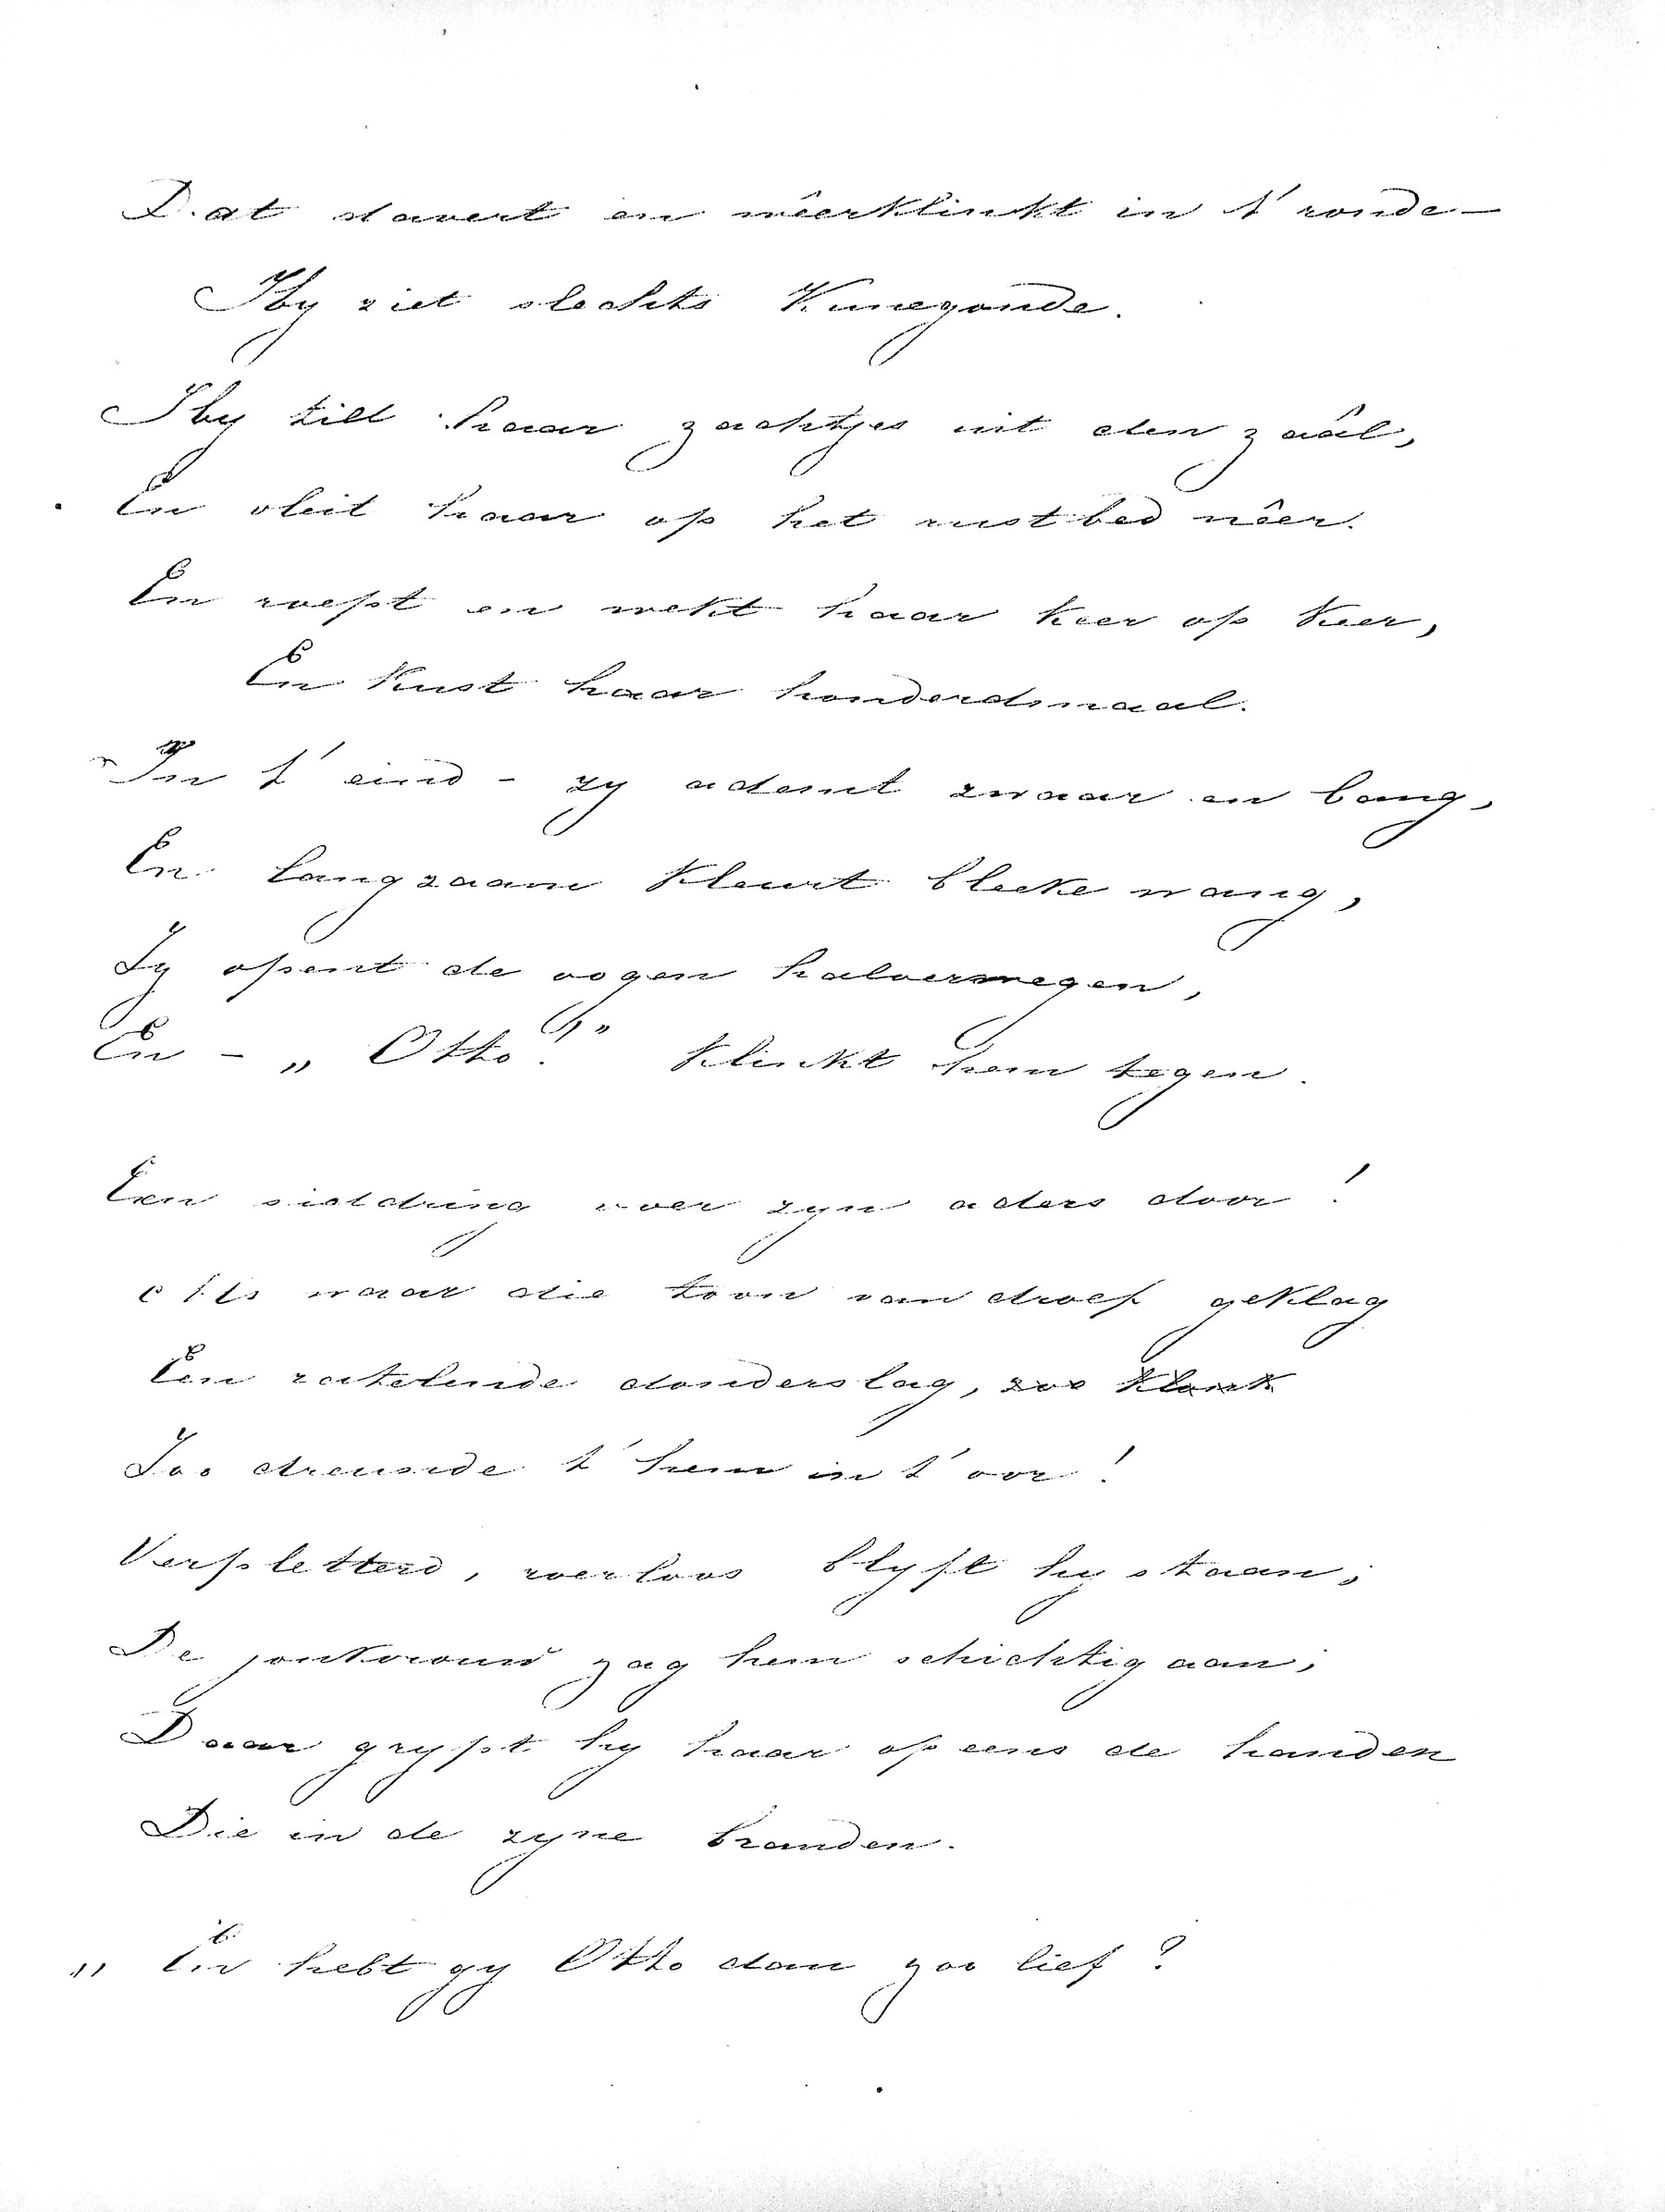 Dat davert en wêerklinkt in t' ronde –
Hy ziet slechts Kunegonde.
Hy tilt haar zachtjes uit den zaâl,
En vleit haar op het rustbed nêer.
En roept en wekt haar keer op keer,
En kust haar honderdmaal.
In t' eind – zy ademt zwaar en bang,
En langzaam kleurt bleeke wang,
Zy opent de oogen halverwegen,
En – „ Otto!" klinkt hem tegen.
Een siddring voer zyn aders door!
Als waar die toon van droef geklag
Een ratelende donderslag, zoo klonk
Zoo dreunde t' hem in t' oor!
Verpletterd, roerloos blyft hy staan;
De jonkvrouw zag hem schichtig aan;
Daar grypt hy haar opeens de handen
Die in de zyne branden.
„ En hebt gy Otto dan zoo lief?